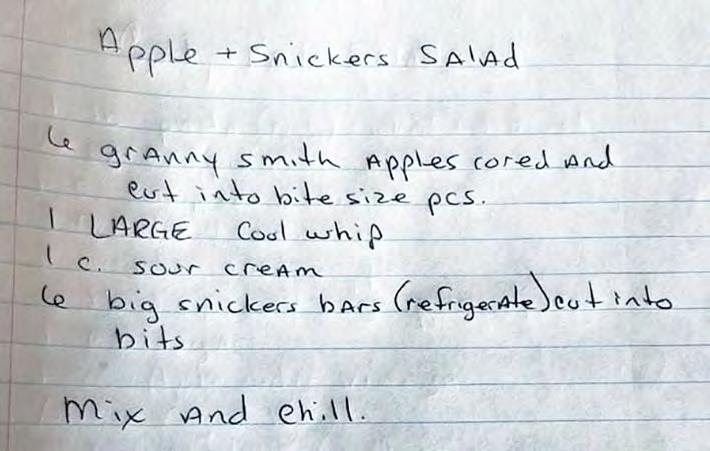 Apple + Snickers Salad
6 granny smith Apples cored and
cut into bite size pcs.
1 LARGE Cool whip
1 c. sour cream
6 big snickers bars (refrigerate) cut into
bits
Mix and chill.